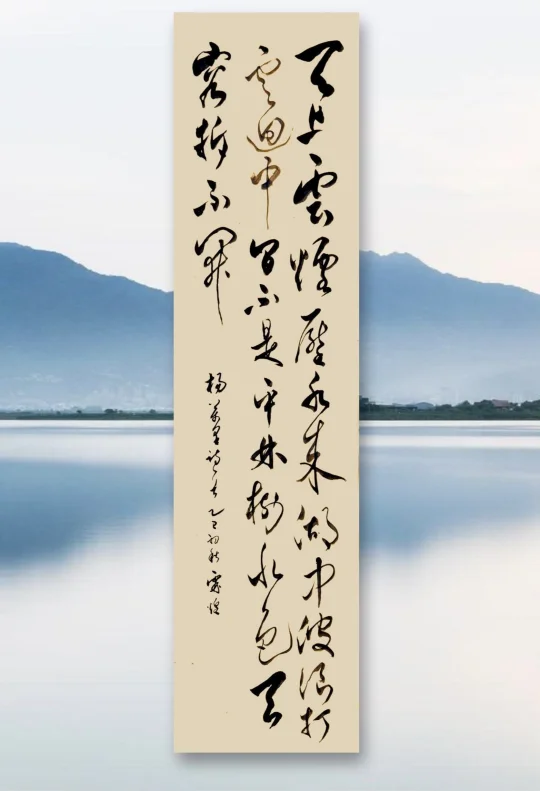 天上雲煙壓水來湖中波浪打
雲迴中間不是平林樹水色天
容拆不開
楊萬里詩一首乙巳初秋